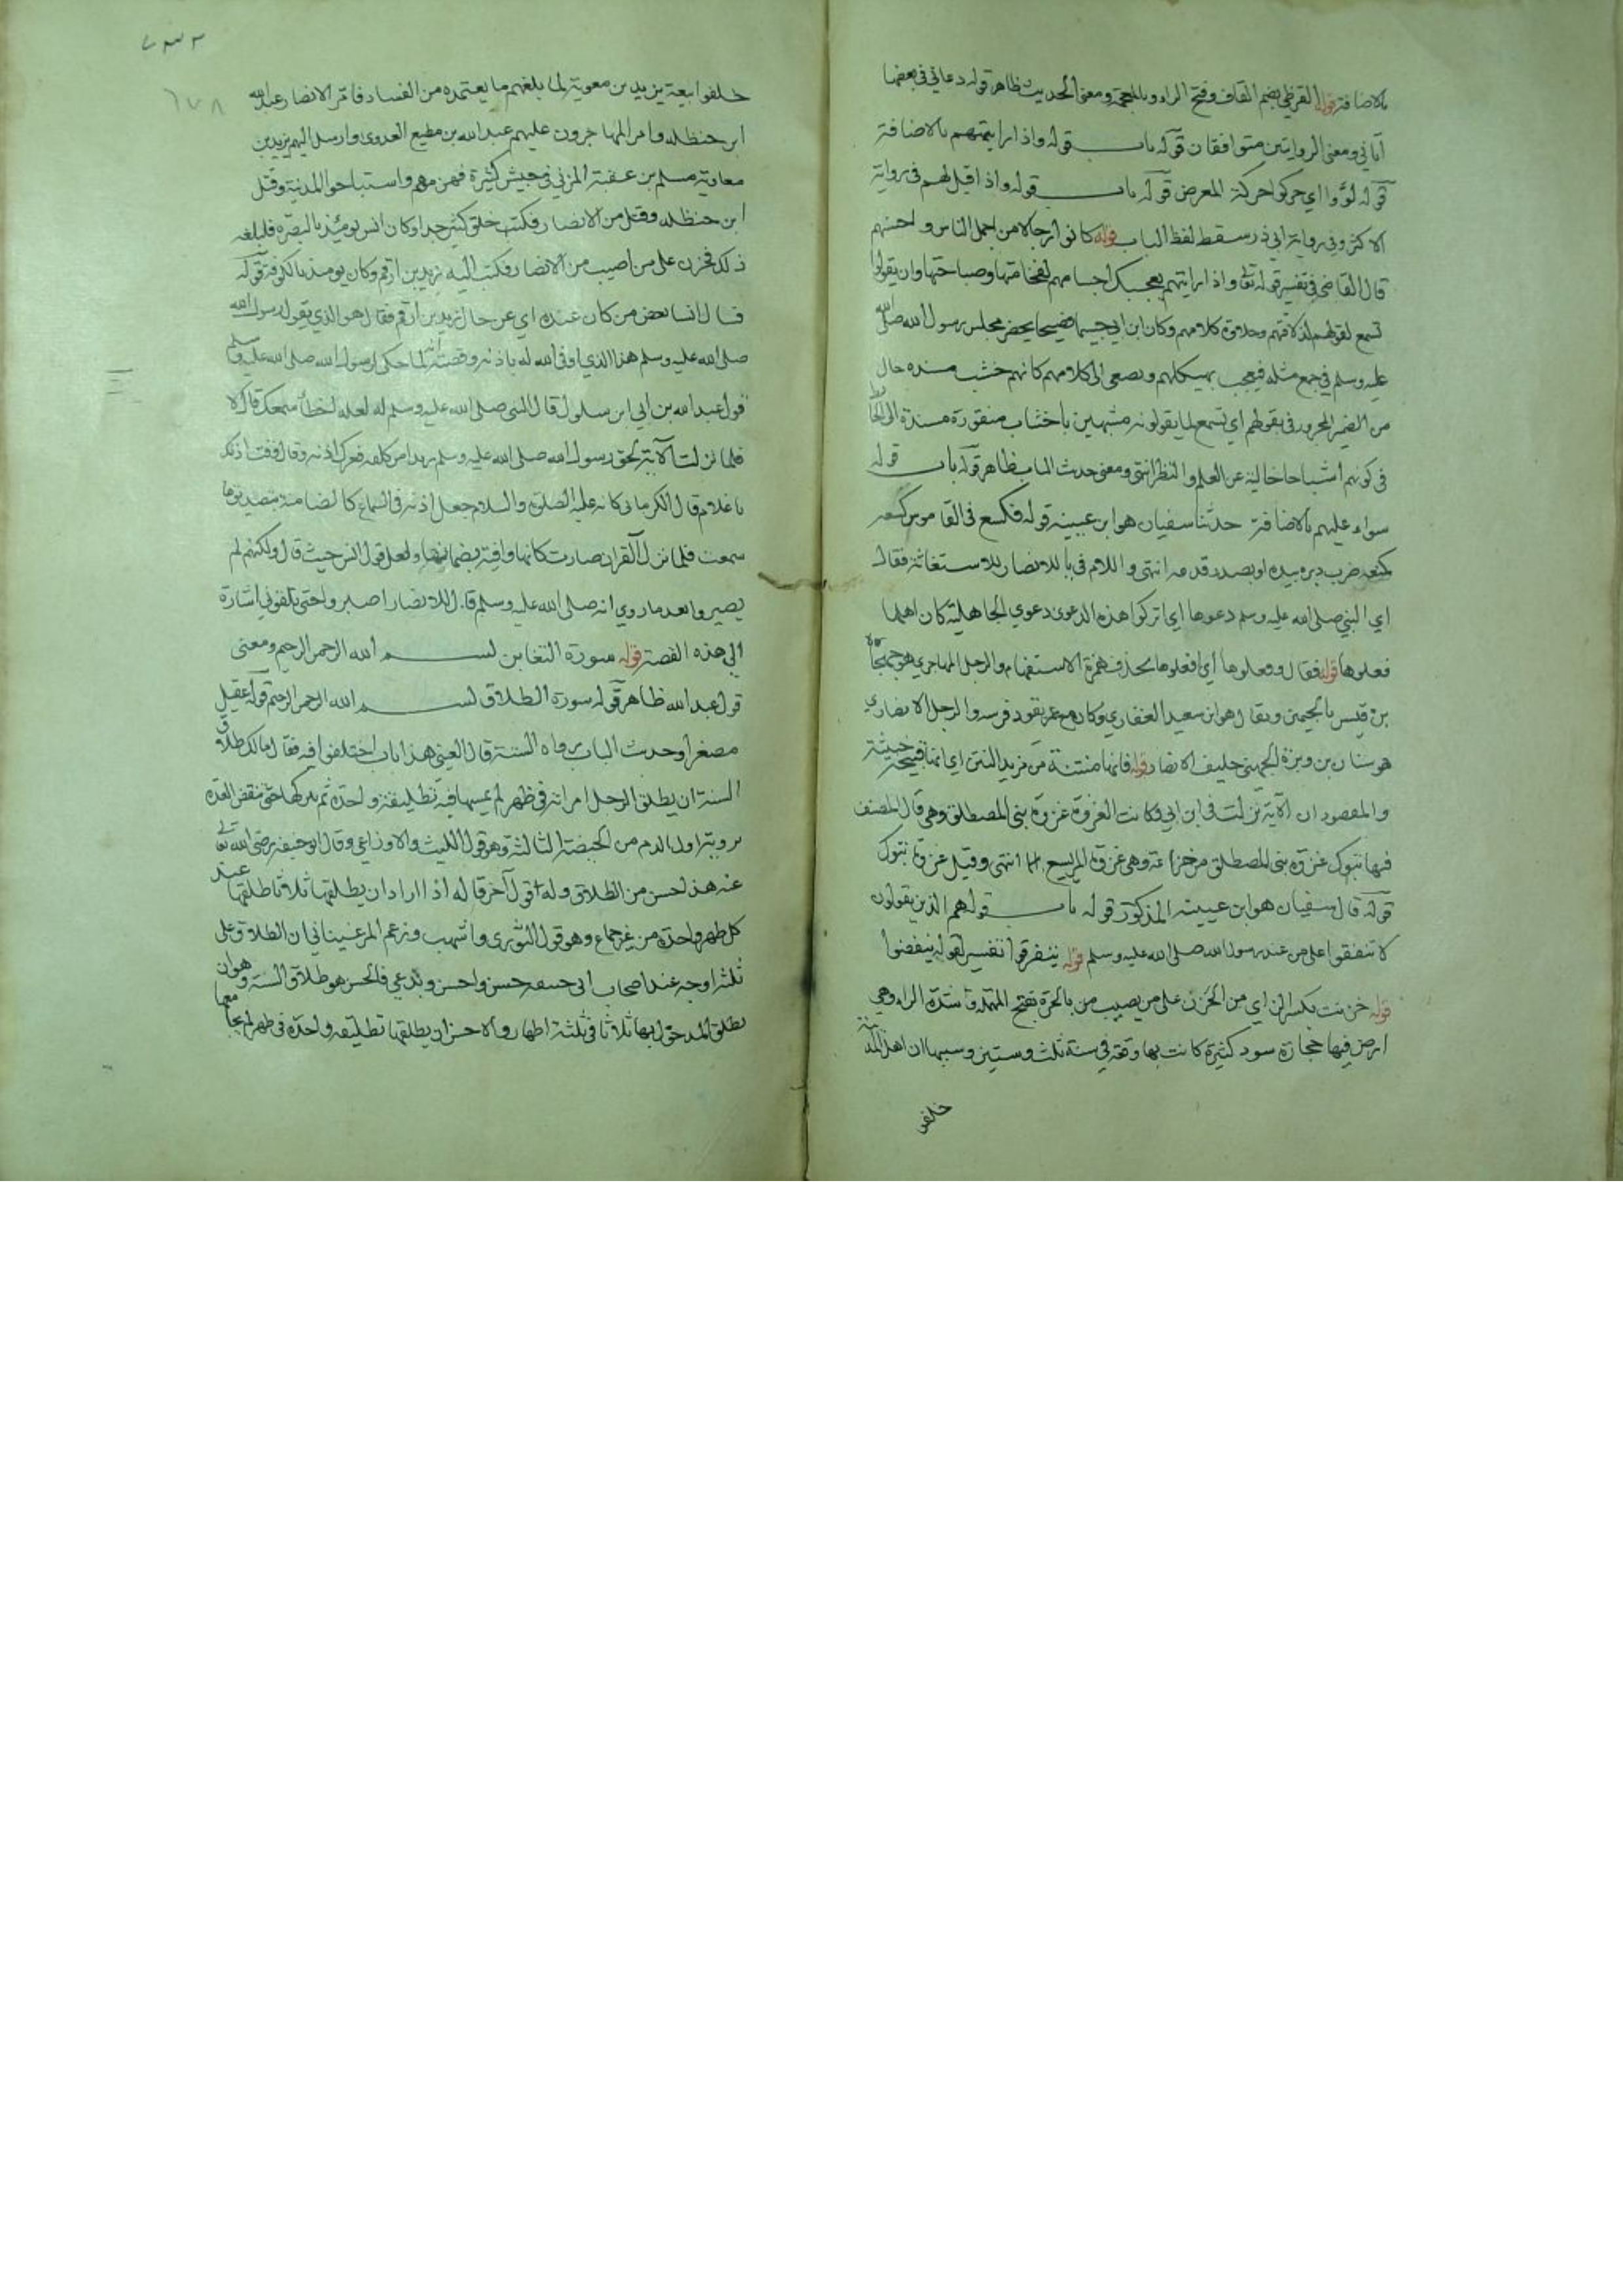 بالاضافة قوله القرظي بضم القاف وفتح الراء وبالمعجمة ومعنى الحديث ظاهر قوله دعاني في بعضها
أتاني ومعنى الروايتين متوافقان قوله باب قوله واذا رايتهم بالاضافة
قوله لووا اي حركوا حركة المعرض قوله باب قوله واذا قيل لهم في رواية
الاكثر وفي رواية ابي ذر سقط لفظ الباب قوله كانوا رجالا من اجمل الناس واحسنهم
قال القاضي في تفسير قوله تعالى واذا رايتهم يعجبك اجسامهم لضخامتها وصباحتها وان يقولوا
تسمع لقولهم لذلاقتهم وحلاوة كلامهم وكان ابن ابي جسيما فصيحا يحضر مجلس رسول الله صلى الله
عليه وسلم في جمع مثله فيعجب بهيكلهم ويصغى الى كلامهم كانهم خشب مسندة حال
من الضمير المجرور في لقولهم اي تسمع لما يقولونه مشبهين باخشاب منقورة مسندة الى الحائط
في كونهم أشباحا خالية عن العلم والنظر انتهى ومعنى حديث الباب ظاهر قوله باب قوله
سواء عليهم بالاضافة حدثنا سفيان هو ابن عيينة قوله فكسع في القاموس كسعه
كمنعه ضرب دبره بيده او بصدر قدمه انتهى واللام في يا للانصار للاستغاثة فقال
اي النبي صلى الله عليه وسلم دعوها اي اتركوا هذه الدعوى دعوي الجاهلية كان اهلها
فعلوها قوله فقال فعلوها أي افعلوها بحذف همزة الاستفهام والرجل المهاجري هو جهجاه
بن قيس بالجيمين ويقال هو ابن سعيد الغفاري وكان مع عمر يقود فرسه والرجل الانصاري
هو سنان بن وبرة الجهني حليف الانصار قوله فانها منتنة من النتن اي انها قبيحة خبيثة
والمقصود ان الآية نزلت في ابن ابي وكانت الغزوة غزوة بني المصطلق وهي قال المصنف
فيها تبوك غزوة بني المصطلق من خزاعة وهي غزوة المريسيع انتهى وقيل غزوة تبوك
قوله قال سفيان هو ابن عيينة المذكور قوله باب قوله هم الذين يقولون
لا تنفقوا على من عند رسول الله صلى الله عليه وسلم قوله يتفرقوا تفسير لقوله ينفضوا
قوله حزنت بكسر الزاي من الحزن على من يصيب من بالحرة بفتح المهملة وشدة الراء وهي
ارض فيها حجارة سود كثيرة كانت بها وقعة في سنة ثلث وستين وسببها ان اهل المدينة
خلعوا
خلفوا بيعة يزيد بن معوية لما بلغهم ما يعتمده من الفساد فامر الانصار عبد الله
ابن حنظلة وامر المهاجرون عليهم عبد الله بن مطيع العدوى وارسل اليهم يزيد بن
معاوية مسلم بن عقبة المزني في جيش كثيرة فهزمهم واستباحوا المدينة وقتل
ابن حنظلة وقتل من الانصار خلق كثير جدا وكان انس يومئذ بالبصرة فلبلغه
ذلك فحزن على من اصيب من الانصار فكتب اليه زيد بن ارقم وكان يومئذ بالكوفة قوله
فسال انسا بعض من كان عنده اي عن حال زيد بن ارقم فقال هو الذي يقول رسول الله
صلى الله عليه وسلم هذا الذي اوفى الله له باذنه وقصته أنه لما حكى لرسول الله صلى الله عليه وسلم
قول عبد الله بن ابي ابن سلول قال النبي صلى الله عليه وسلم له لعله اخطأ سمعك قال لا
فلما نزلت الآية لحق رسول الله صلى الله عليه وسلم زيدا من خلفه فعرك اذنه وقال وفت اذنك
يا غلام قال الكرماني كانه عليه الصلوة والسلام جعل اذنه في السماع كالضامنة بتصديق ما
سمعت فلما نزل القران صارت كانها وافية بضمانها ولعل قول انس حيث قال ولكنهم لم
يصبروا بعد ما روي انه صلى الله عليه وسلم قال للانصار اصبروا حتى تلقوني اشارة
الى هذه القصة قوله سورة التغابن بسم الله الرحمن الرحيم ومعنى
قول عبد الله ظاهر قوله سورة الطلاق بسم الله الرحمن الرحيم قوله عقيل
مصغرا وحديث الباب السنة قال العيني هذا باب اختلفوا فيه فقال مالك طلاق
السنة ان يطلق الرجل امراته في طهر لم يمسها فيه تطليقة واحدة ثم يتركها حتى تنقضي العدة
بروية اول الدم من الحيضة الثالثة وهو قول الليث والاوزاعي وقال ابو حنيفة رضى الله تعالى
عنه هذا احسن من الطلاق وله قول آخر قاله اذا اراد ان يطلقها ثلاثا طلقها عند
كل طهر واحدة من غير جماع وهو قول الثوري واشهب وزعم المرغيناني ان الطلاق على
ثلثة اوجه عند اصحاب ابي حنيفة حسن واحسن وبدعي فالحسن هو طلاق السنة وهو ان
يطلق المدخول بها ثلاثا في ثلثة اطهار والاحسن ان يطلقها تطليقة واحدة في طهر لم يجامعها